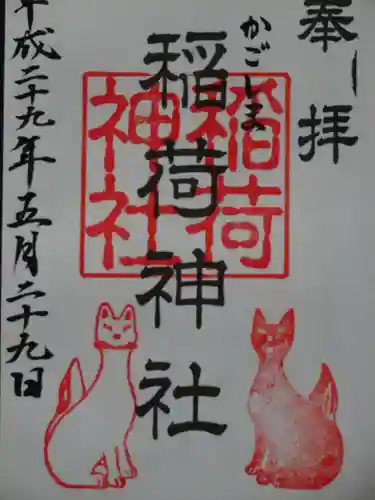 奉拝
かごしま
稲荷神社
稲荷
神社
平成二十九年五月二十九日